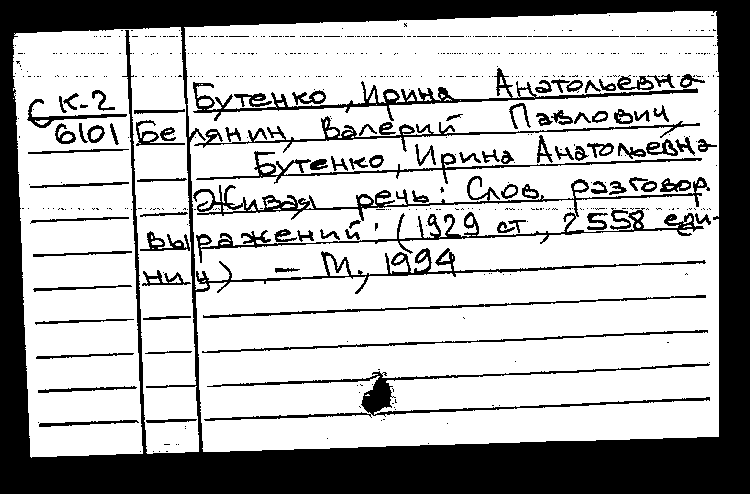 С К-2
6101
Бутенко, Ирина Анатольевна
Белянин, Валерий Павлович,
Бутенко, Ирина Анатольевна
Живая речь: Слов. разговор.
выражений: (1929 ст., 2558 еди-
ниц) – М., 1994